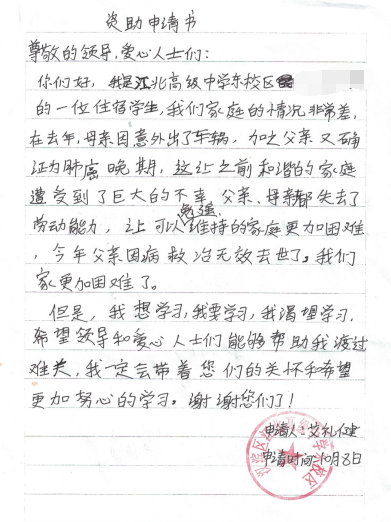 资助申请书
尊敬的领导,爱心人士们:
你们好,我是江北高级中学东校区
的一位住宿学生,我们家庭的情况非常差,
在去年,母亲因意外出了车祸,加之父亲又确
证为肺癌晚期,这让之前和谐的家庭
遭受到了巨大的不幸,父亲、母亲都失去了
劳动能力,让可以勉强维持的家庭更加困难
,今年父亲因病救治无效去世了。我们
家更加困难了。
但是,我想学习,我要学习,我渴望学习,
希望领导和爱心人士们能够帮助我渡过
难关,我一定会带着您们的关怀和希望
更加努心的学习。谢谢您们了!
申请人:艾礼健
申请时间:10月8日